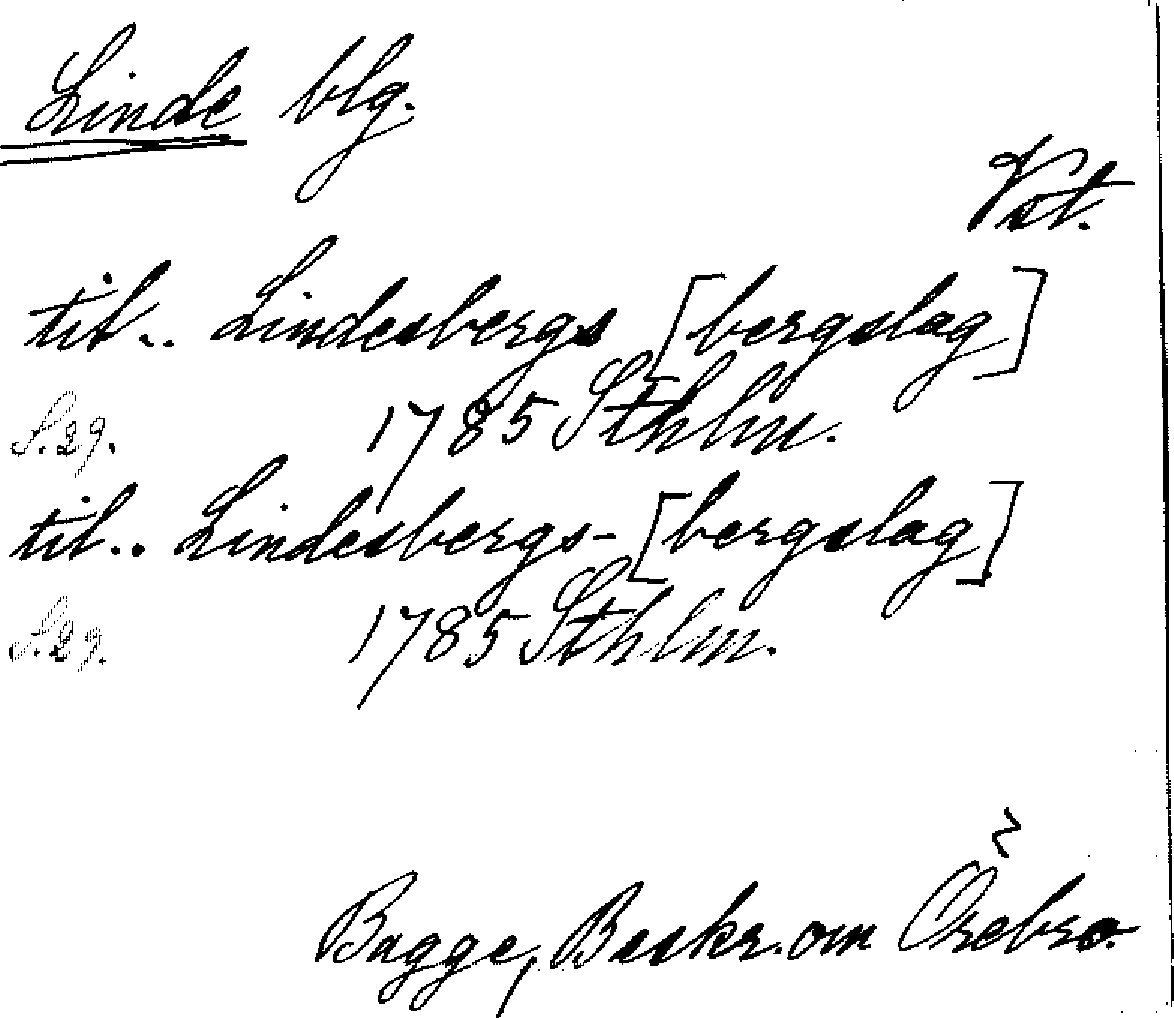 Linde blg.
Vst.
til.. Lindesbergs [bergslag]
S. 29. 1785 Sthlm.
til.. Lindesbergs- [bergslag]
S. 29. 1785 Sthlm.
Bagge, Beskr. om Örebro.